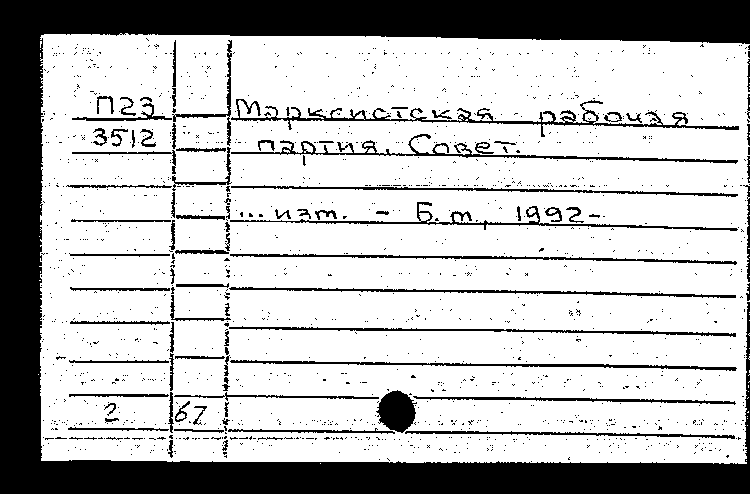 П23 Марксистская рабочая
3512 партия. Совет.
... изт. - Б.м., 1992-
2 67